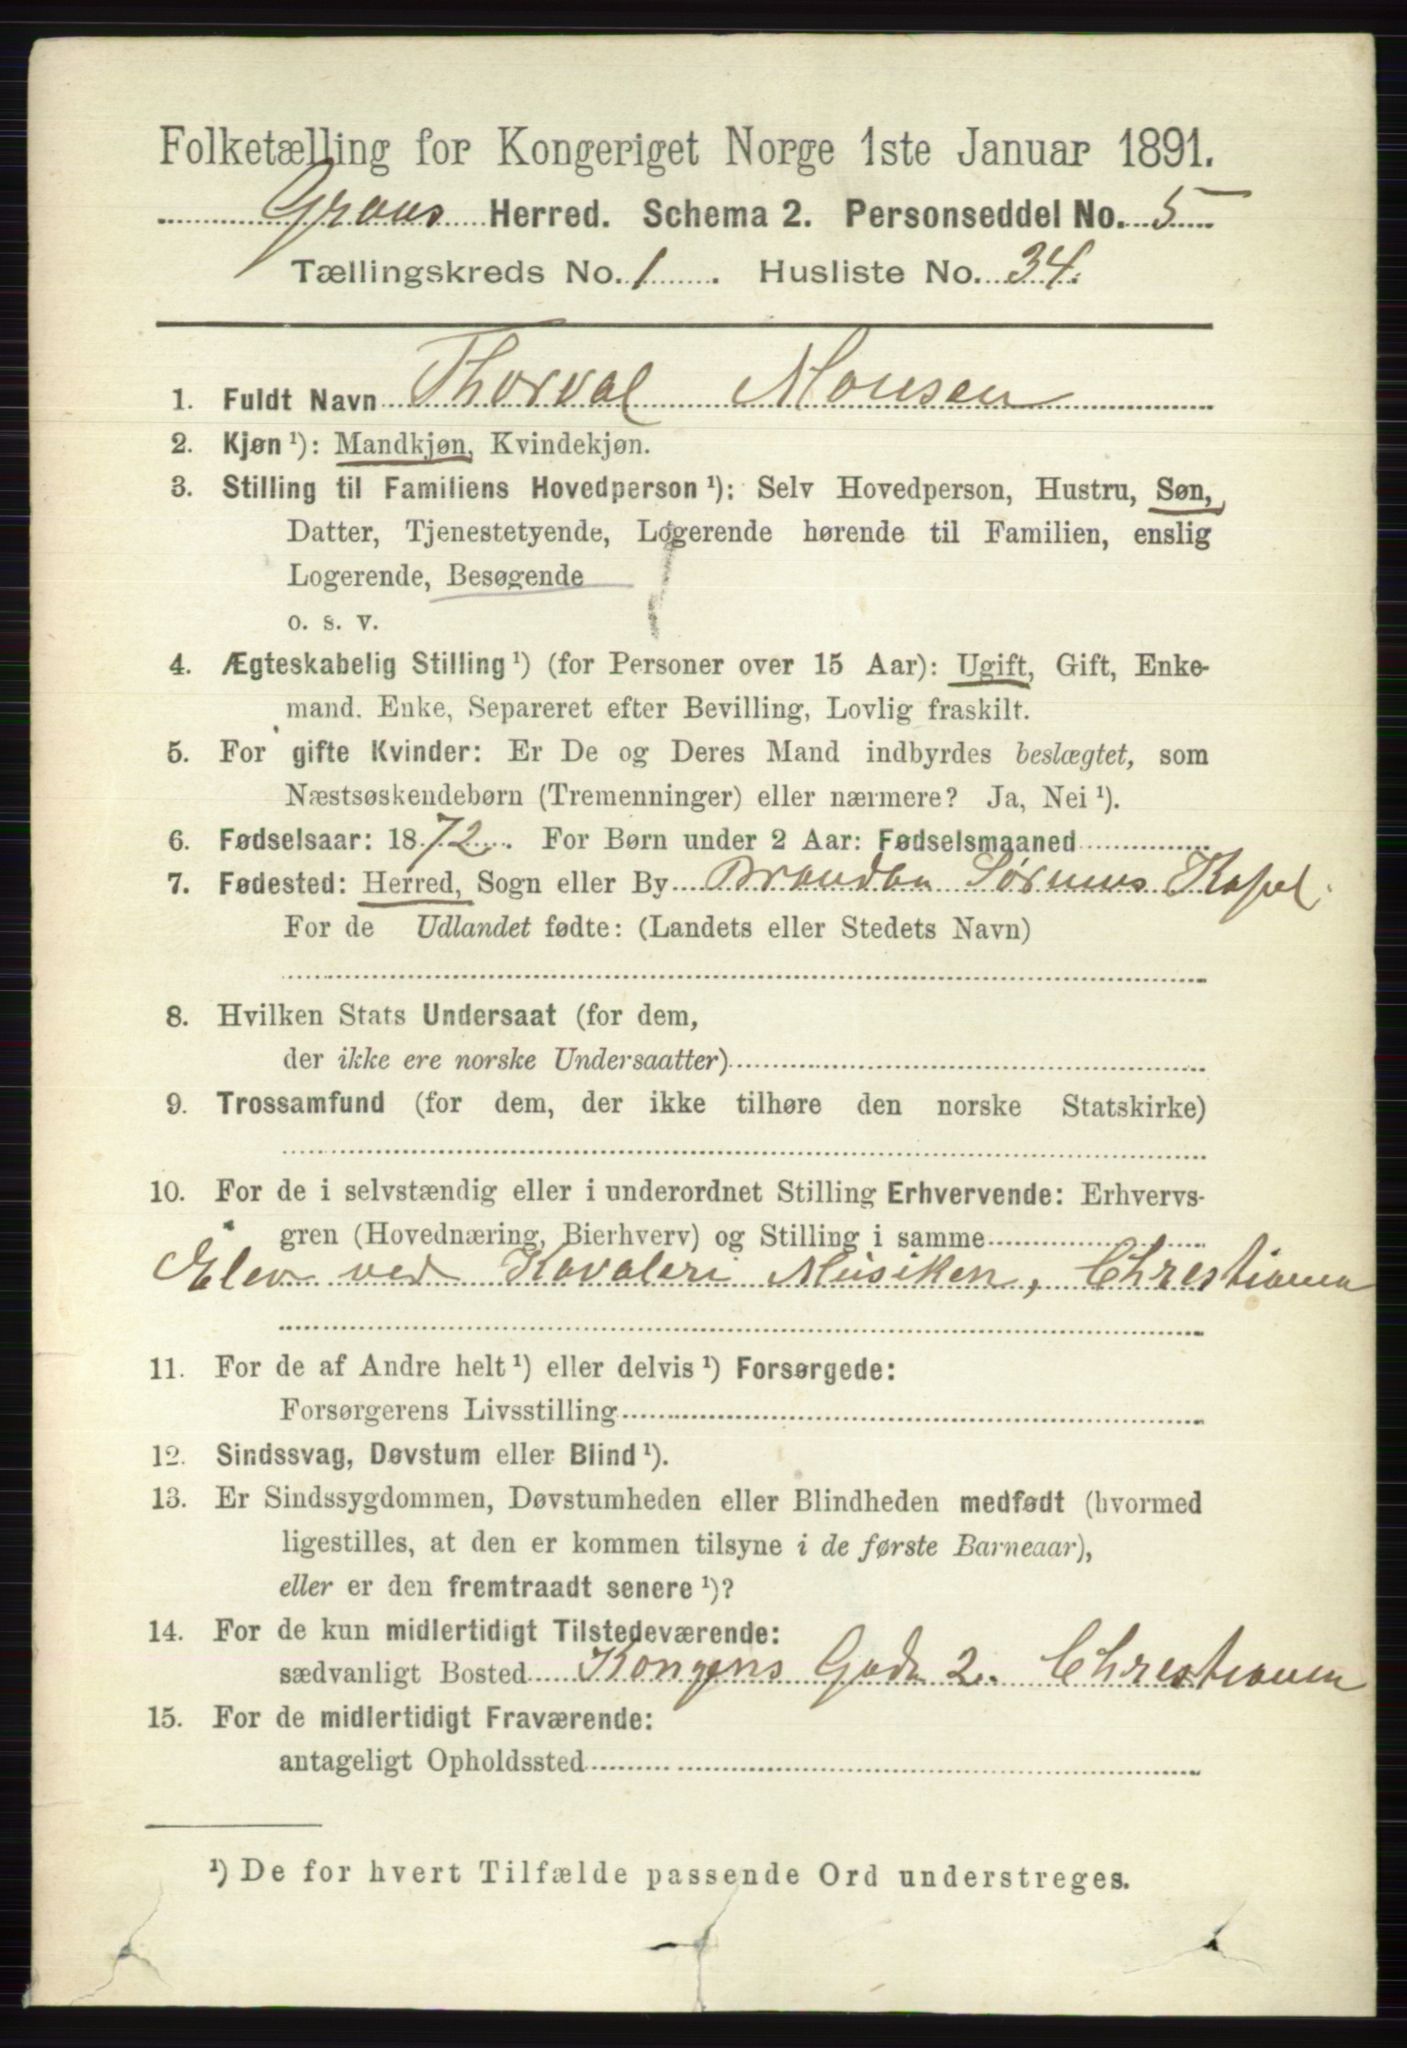 Folketælling for Kongeriget Norge 1ste Januar 1891.
Grans Herred. Schema 2. Personseddel No. 5
Tællingskreds No. 1. Husliste No. 34.
1. Fuldt Navn Thorval Monsen
2. Kjøn ¹): Mandkjøn, Kvindekjøn.
3. Stilling til Familiens Hovedperson ¹): Selv Hovedperson, Hustru, Søn,
Datter, Tjenestetyende, Logerende hørende til Familien, enslig
Logerende, Besøgende
o. s. v.
4. Ægteskabelig Stilling ¹) (for Personer over 15 Aar): Ugift, Gift, Enke-
mand. Enke, Separeret efter Bevilling, Lovlig fraskilt.
5. For gifte Kvinder: Er De og Deres Mand indbyrdes beslægtet, som
Næstsøskendebørn (Tremenninger) eller nærmere? Ja, Nei ¹).
6. Fødselsaar: 1872. For Børn under 2 Aar: Fødselsmaaned
7. Fødested: Herred, Sogn eller By Brandbu Sørums Kapel.
For de Udlandet fødte: (Landets eller Stedets Navn)
8. Hvilken Stats Undersaat (for dem,
der ikke ere norske Undersaatter)
9. Trossamfund (for dem, der ikke tilhøre den norske Statskirke)
10. For de i selvstændig eller i underordnet Stilling Erhvervende: Erhvervs-
gren (Hovednæring, Bierhverv) og Stilling i samme
Elev ved Kavaleri Musiken, Christiania
11. For de af Andre helt ¹) eller delvis ¹) Forsørgede:
Forsørgerens Livsstilling
12. Sindssvag, Døvstum eller Blind ¹).
13. Er Sindssygdommen, Døvstumheden eller Blindheden medfødt (hvormed
ligestilles, at den er kommen tilsyne i de første Barneaar),
eller er den fremtraadt senere ¹)?
14. For de kun midlertidigt Tilstedeværende:
sædvanligt Bosted Kongens Gade 2. Christiania
15. For de midlertidigt Fraværende:
antageligt Opholdssted
¹) De for hvert Tilfælde passende Ord understreges.